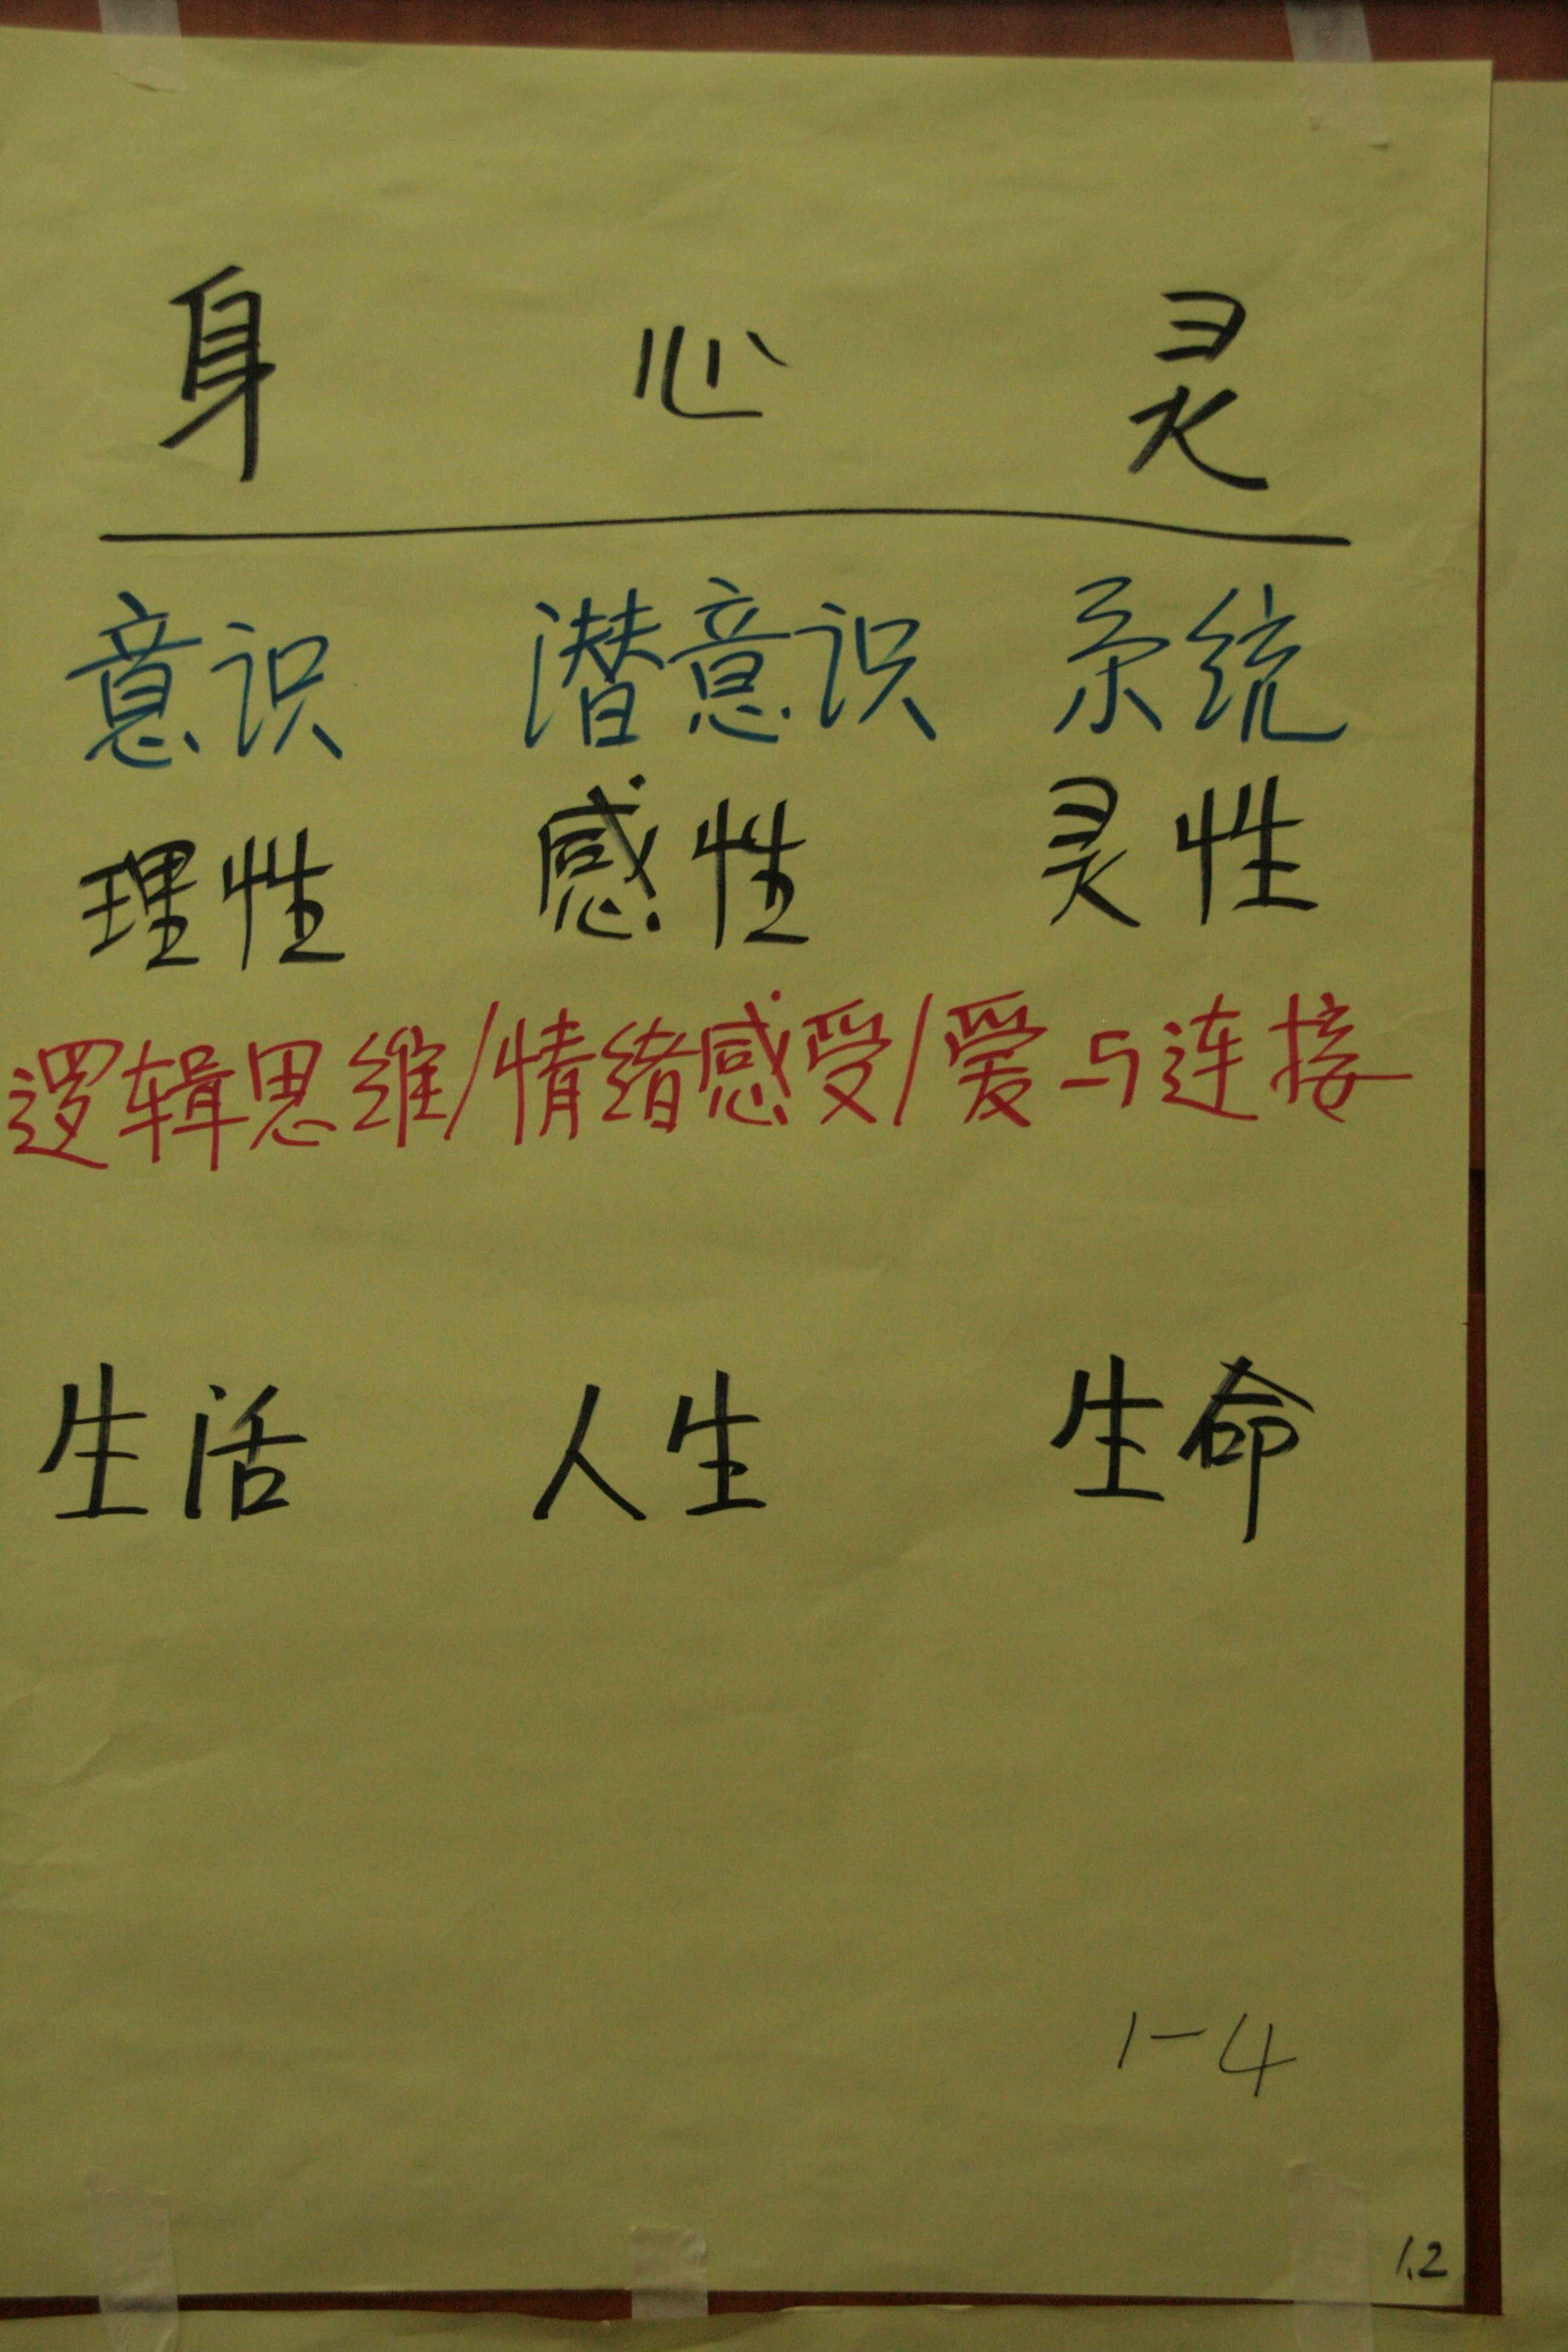 身 心 灵
意识 潜意识 系统
理性 感性 灵性
逻辑思维/情绪感受/爱与连接
生活 人生 生命
1-4
1.2